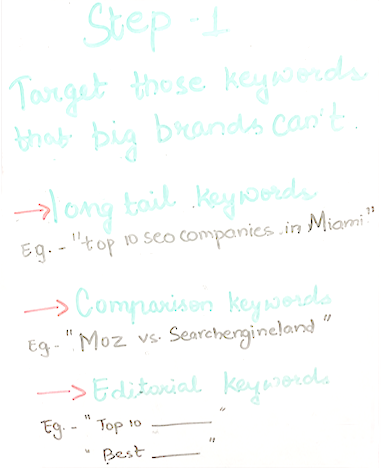 Step -1
Target those keywords
that big brands can't.
→ long tail keywords
Eg. - "top 10 seo companies in Miami"
→ Comparison keywords
Eg - "Moz vs. Searchengineland"
→ Editorial keywords
Eg. - "Top 10 ______"
"Best ______"